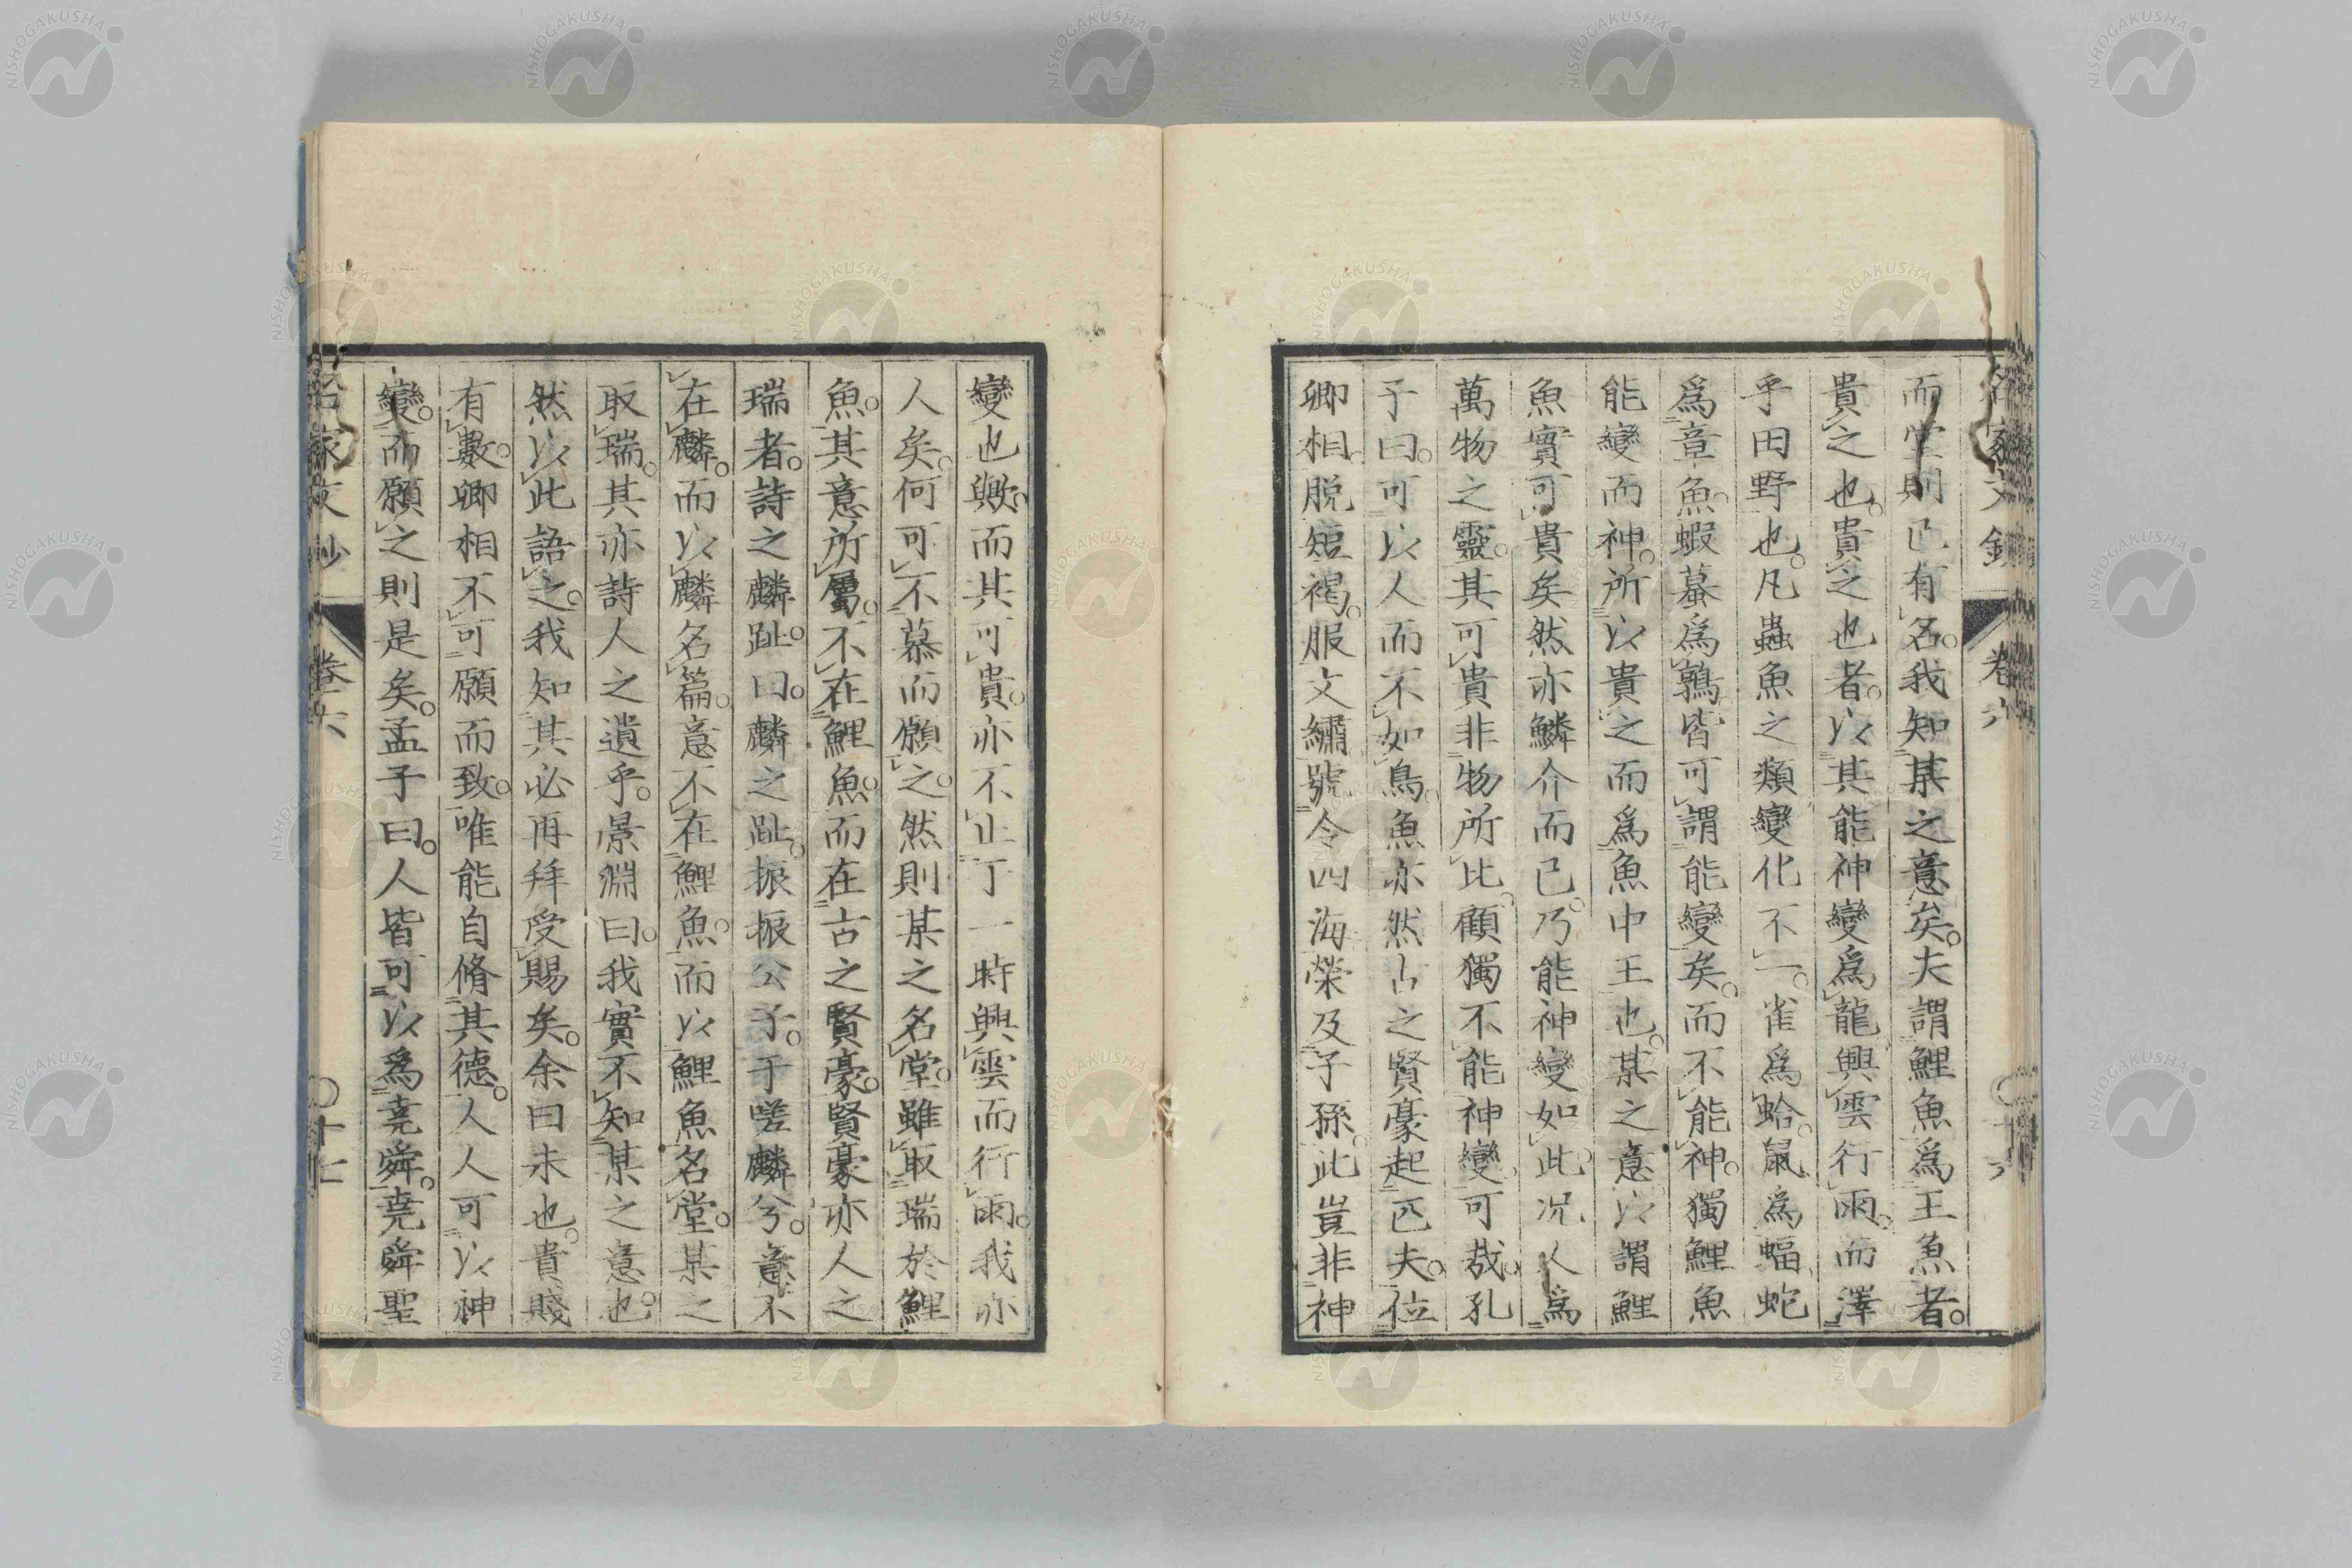 名家文鈔 卷六
而堂則已有名。我知某之意矣。夫謂鯉魚爲王魚者。
貴之也。貴之也者。以其能神變爲龍興雲行雨。而澤
乎田野也。凡蟲魚之類變化不一。雀爲蛤。鼠爲蝠。蛇
爲章魚。蝦蟇爲鶉。皆可謂能變矣。而不能神。獨鯉魚
能變而神。所以貴之而爲魚中王也。某之意以謂鯉
魚實可貴矣然亦鱗介而已。乃能神變如此。况人爲
萬物之靈。其可貴非物所比。顧獨不能神變。可哉。孔
子曰。可以人而不如鳥。魚亦然古之賢豪起匹夫。位
卿相。脱短褐。服文繡。號令四海榮及子孫。此豈非神
變也歟。而其可貴。亦不止丁一時興雲而行雨。我亦
人矣。何可不慕而願之。然則某之名堂。雖取瑞於鯉
魚。其意所屬。不在鯉魚。而在古之賢豪。賢豪亦人之
瑞者。詩之麟趾。曰。麟之趾。振振公子。于嗟麟兮。意不
在麟。而以麟名篇。意不在鯉魚。而以鯉魚名堂。某之
取瑞。其亦詩人之遺乎。景淵曰。我實不知某之意也。
然以此語之。我知其必再拜受賜矣。余曰未也。貴賤
有數。卿相不可願而致。唯能自脩其德。人人可以神
變。而願之則是矣。孟子曰。人皆可以爲堯舜。堯舜聖
名家文鈔 卷六 〇十七
NISHOGAKUSHA